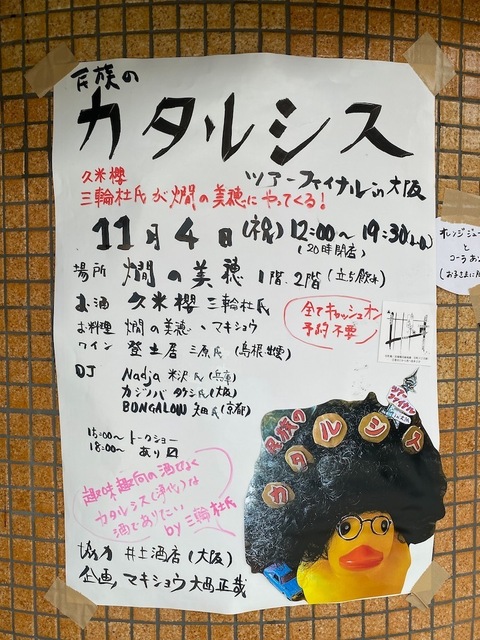 民族の
カタルシス
ツアーファイナルin大阪
久米櫻
三輪杜氏が燗の美穂にやってくる!
11月4日(祝)12:00〜19:30(L.O)
(20時閉店)
場所 燗の美穂 1階、2階(立ち飲み)
お酒 久米櫻 三輪杜氏
お料理 燗の美穂、マキショウ
ワイン 登土居 三原氏(島根・出雲)
全てキャッシュオン
予約不要
DJ Nadja 米沢氏(兵庫)
カジノバ タケシ氏(大阪)
BONGALOW 知田氏(京都)
15:00〜 トークショー
18:00〜 あり
趣味趣向の酒でなく
カタルシス(浄化)な
酒でありたい
by 三輪杜氏
協力 井上酒店(大阪)
企画 マキショウ 大西正哉
民族の
カタルシス
ツアー
ファイナル
オレンジジュー
と
コーラあり
(お子さまに